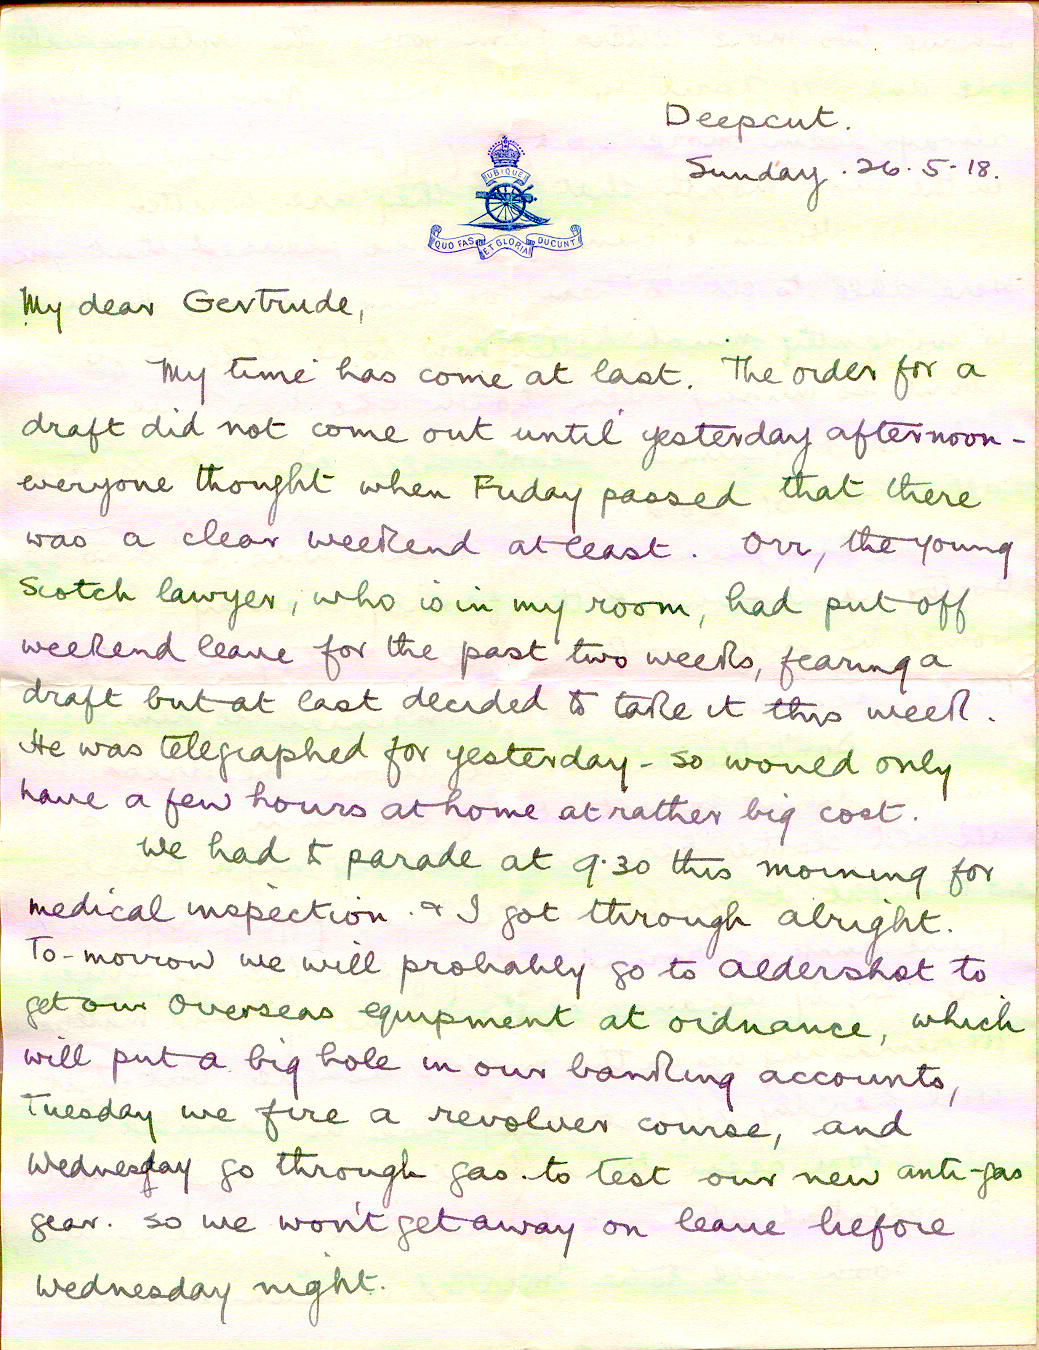 Deepcut.
Sunday. 26.5.18.
UBIQUE
QUO FAS ET GLORIA DUCUNT
My dear Gertrude,
My time has come at last. The order for a
draft did not come out until yesterday afternoon -
everyone thought when Friday passed that there
was a clear weekend at least. Orr, the young
Scotch lawyer, who is in my room, had put off
weekend leave for the past two weeks, fearing a
draft but at last decided to take it this week.
He was telegraphed for yesterday - so would only
have a few hours at home at rather big cost.
We had to parade at 9.30 this morning for
medical inspection. & I got through alright.
To-morrow we will probably go to Aldershot to
get our Overseas equipment at ordnance, which
will put a big hole in our banking accounts,
Tuesday we fire a revolver course, and
Wednesday go through gas. to test our new anti-gas
gear. So we won't get away on leave before
Wednesday night.